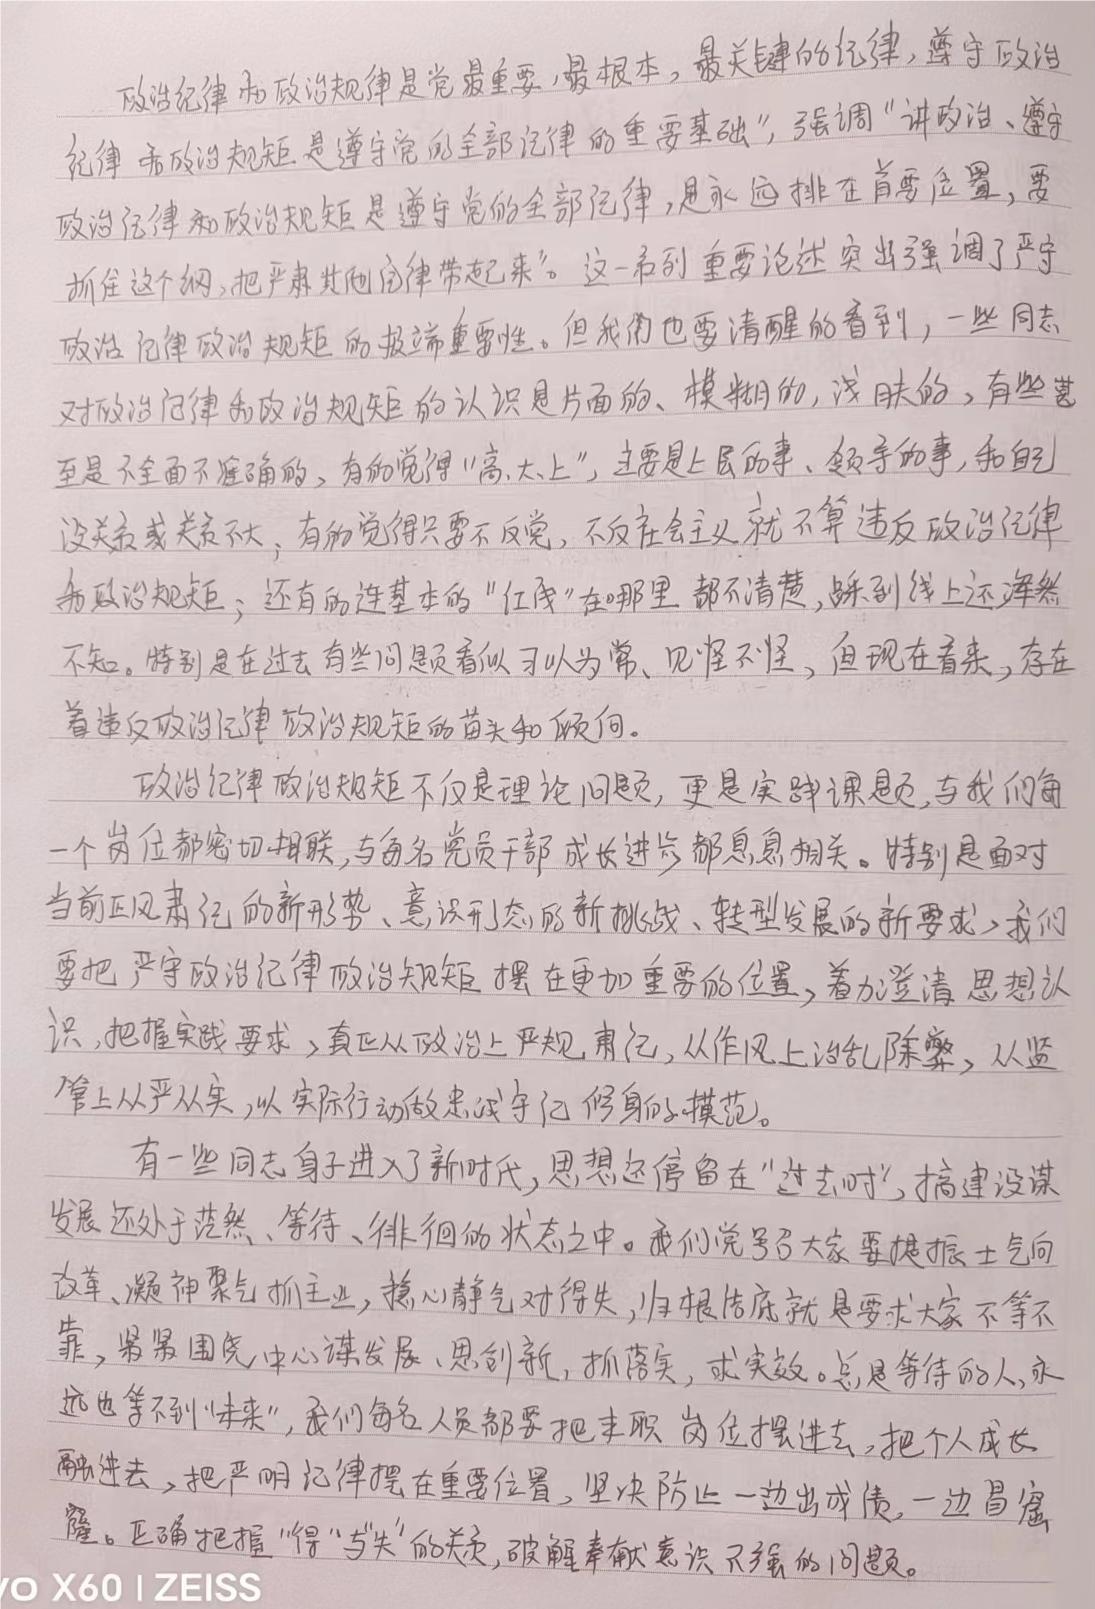 政治纪律和政治规律是党最重要,最根本,最关键的纪律,遵守政治
纪律和政治规矩是遵守党的全部纪律的重要基础”,强调“讲政治、遵守
政治纪律和政治规矩是遵守党的全部纪律,是永远排在首要位置,要
抓住这个纲,把严肃其他纪律带起来”。这一系列重要论述突出强调了严守
政治纪律政治规矩的极端重要性。但我们也要清醒的看到,一些同志
对政治纪律和政治规矩的认识是片面的、模糊的,浅肤的,有些甚
至是不全面不准确的、有的觉得“高、大、上”,主要是上层的事、领导的事,和自己
没关系或关系不大;有的觉得只要不反党,不反社会主义就不算违反政治纪律
和政治规矩;还有的连基本的“红线”在哪里都不清楚,踩到线上还浑然
不知。特别是在过去有些问题看似习以为常、见怪不怪,但现在看来,存在
着违反政治纪律政治规矩的苗头和倾向。
政治纪律政治规矩不仅是理论问题,更是实践课题,与我们每
一个岗位都密切相联,与每名党员干部成长进步都息息相关。特别是面对
当前正风肃纪的新形势、意识形态的新挑战、转型发展的新要求,我们
要把严守政治纪律政治规矩摆在更加重要的位置,着力澄清思想认
识,把握实践要求,真正从政治上严规肃纪,从作风上治乱除弊,从监
管上从严从实,以实际行动做忠诚守纪修身的模范。
有一些同志身子进入了新时代,思想还停留在“过去时”,搞建设谋
发展还处于茫然、等待、徘徊的状态之中。我们党号召大家要提振士气向
改革、凝神聚气抓主业,稳心静气对得失,归根结底就是要求大家不等不
靠,紧紧围绕中心谋发展、思创新,抓落实,求实效。总是等待的人,永
远也等不到“未来”,我们每名人员都要把本职岗位摆进去,把个人成长
融进去,把严明纪律摆在重要位置,坚决防止一边出成绩,一边冒窟
窿。正确把握“得”与“失”的关系,破解奉献意识不强的问题。
vo X60 | ZEISS